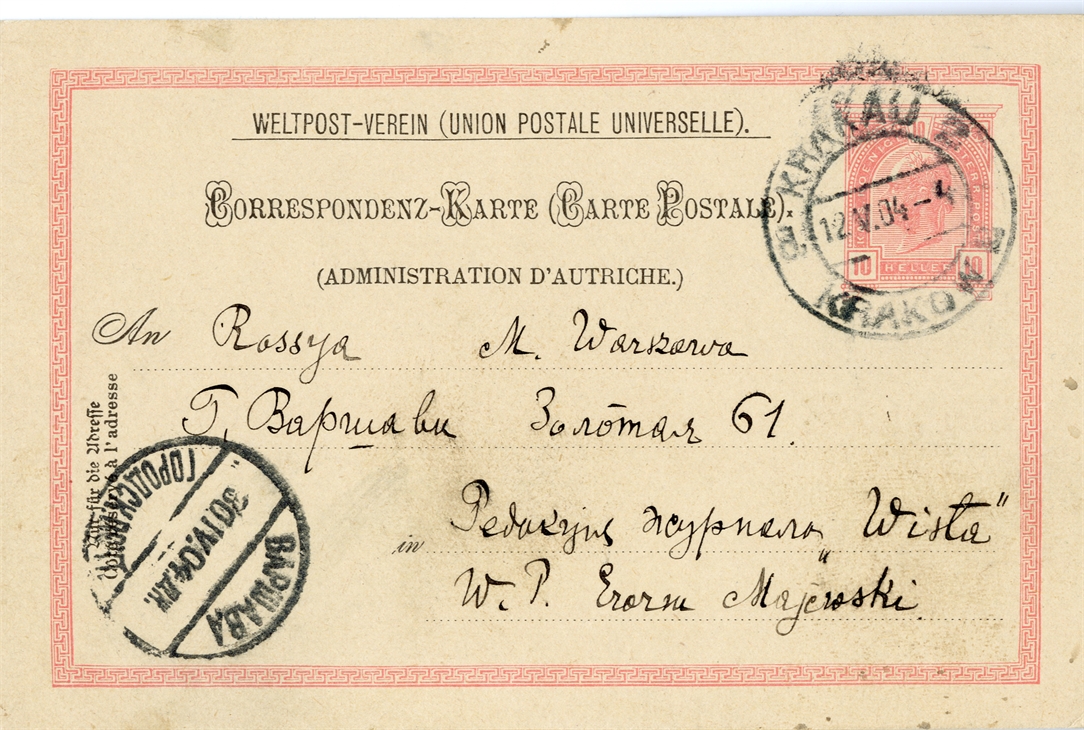 WELTPOST-VEREIN (UNION POSTALE UNIVERSELLE).
CORRESPONDENZ-KARTE (CARTE POSTALE).
(ADMINISTRATION D'AUTRICHE.)
KRAKAU 2
12.V.04-4
KRAKÓW
10 HELLER 10
An Rossya M. Warszawa
Г. Варшава Золотая 61.
Nur für die Adresse
Côté réservé à l'adresse
ГОРОДСК.
30.IV.04
ВАРШАВА
in Редакция журнала „Wisła"
W. P. Erazm Majewski.